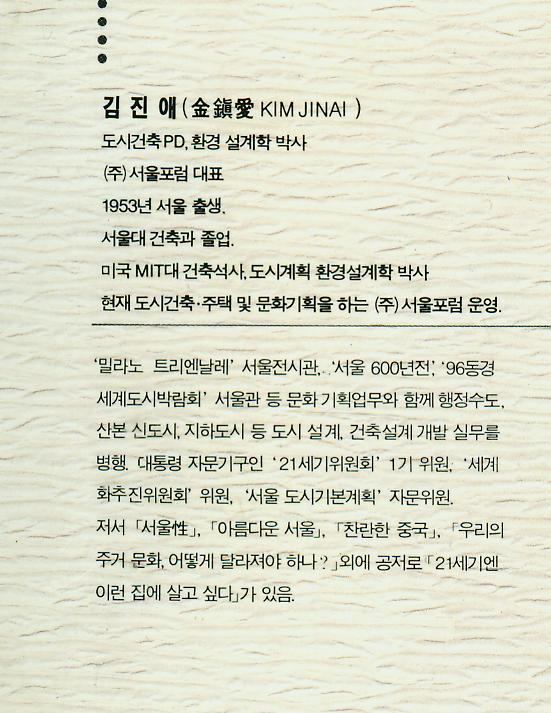 김 진 애 (金鎭愛 KIM JINAI )
도시건축 PD, 환경 설계학 박사
(주) 서울포럼 대표
1953년 서울 출생.
서울대 건축과 졸업.
미국 MIT대 건축석사, 도시계획 환경설계학 박사
현재 도시건축·주택 및 문화기획을 하는 (주) 서울포럼 운영.
'밀라노 트리엔날레' 서울전시관, '서울 600년전', '96동경
세계도시박람회' 서울관 등 문화 기획업무와 함께 행정수도,
산본 신도시, 지하도시 등 도시 설계, 건축설계 개발 실무를
병행. 대통령 자문기구인 '21세기위원회' 1기 위원, '세계
화추진위원회' 위원, '서울 도시기본계획' 자문위원.
저서 「서울性」, 「아름다운 서울」, 「찬란한 중국」, 「우리의
주거 문화, 어떻게 달라져야 하나?」외에 공저로 「21세기엔
이런 집에 살고 싶다」가 있음.